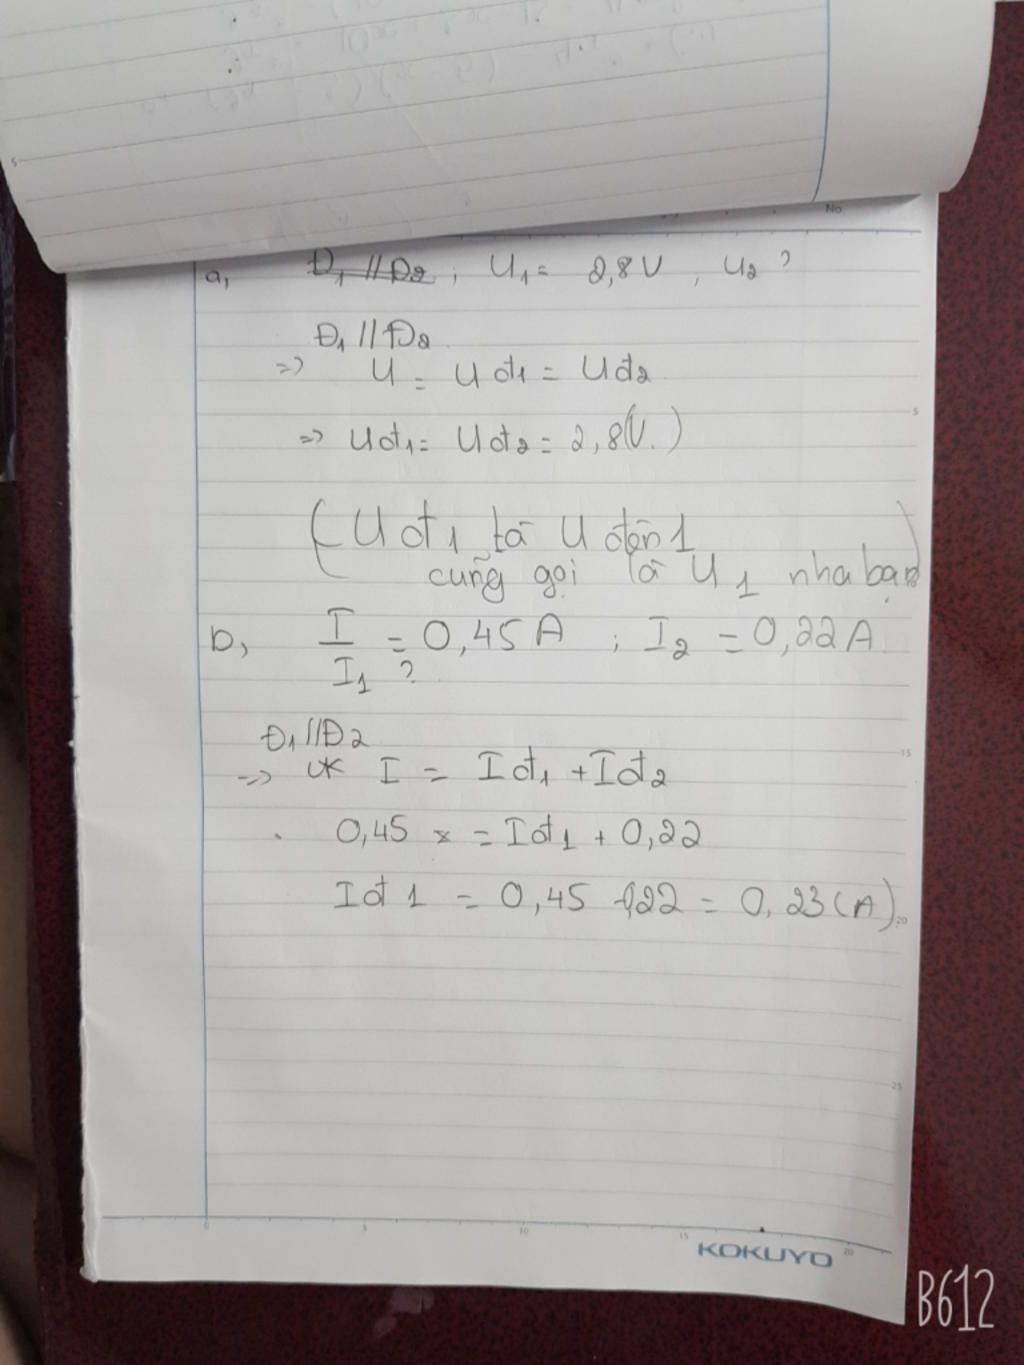 No
a, Đ1 // Đ2 ; U1 = 2,8V , U2 ?
Đ1 // Đ2
=> U = Uđ1 = Uđ2
=> Uđ1 = Uđ2 = 2,8(V.)
( Uđ1 là U đèn 1
cũng gọi là U1 nha bạn )
b, I = 0,45A ; I2 = 0,22A
I1 ?
Đ1 // Đ2
=> I = Iđ1 + Iđ2
0,45 = Iđ1 + 0,22
Iđ1 = 0,45 - 0,22 = 0,23 (A)
5
15
20
25
0 5 10 15 20
KOKUYO
B612